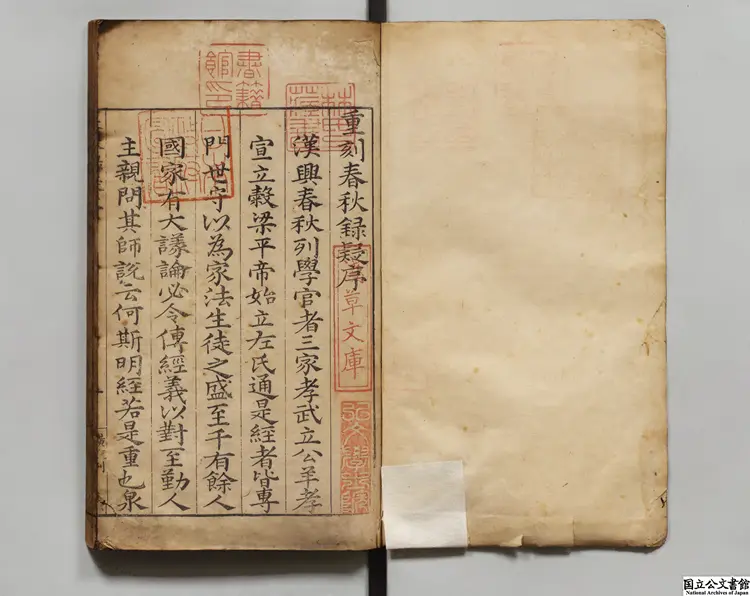 重刻春秋録疑序
漢興春秋列學官者三家孝武立公羊孝
宣立穀梁平帝始立左氏通是經者皆專
門世守以為家法生徒之盛至千有餘人
國家有大議論必令傳經義以對至勤人
主親問其師說云何斯明經若是重也泉
書籍館印
草文庫
国立公文書館
National Archives of Japan